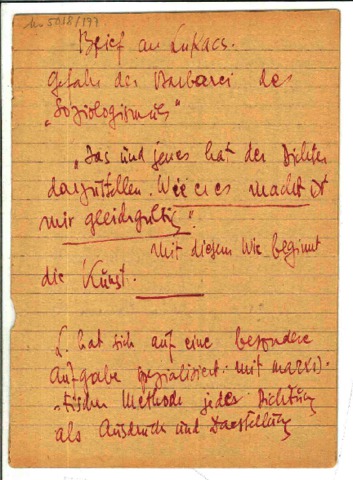 Ms 5018/197
Brief an Lukacs.
Gefahr der Barbarei des
„Soziologismus"
„Das und jenes hat der Dichter
darzustellen. Wie er es macht ist
mir gleichgültig".
Mit diesem Wie beginnt
die Kunst.
L. hat sich auf eine besondere
Aufgabe spezialisiert: mit marxi-
stischer Methode jede Dichtung
als Ausdruck und Darstellung